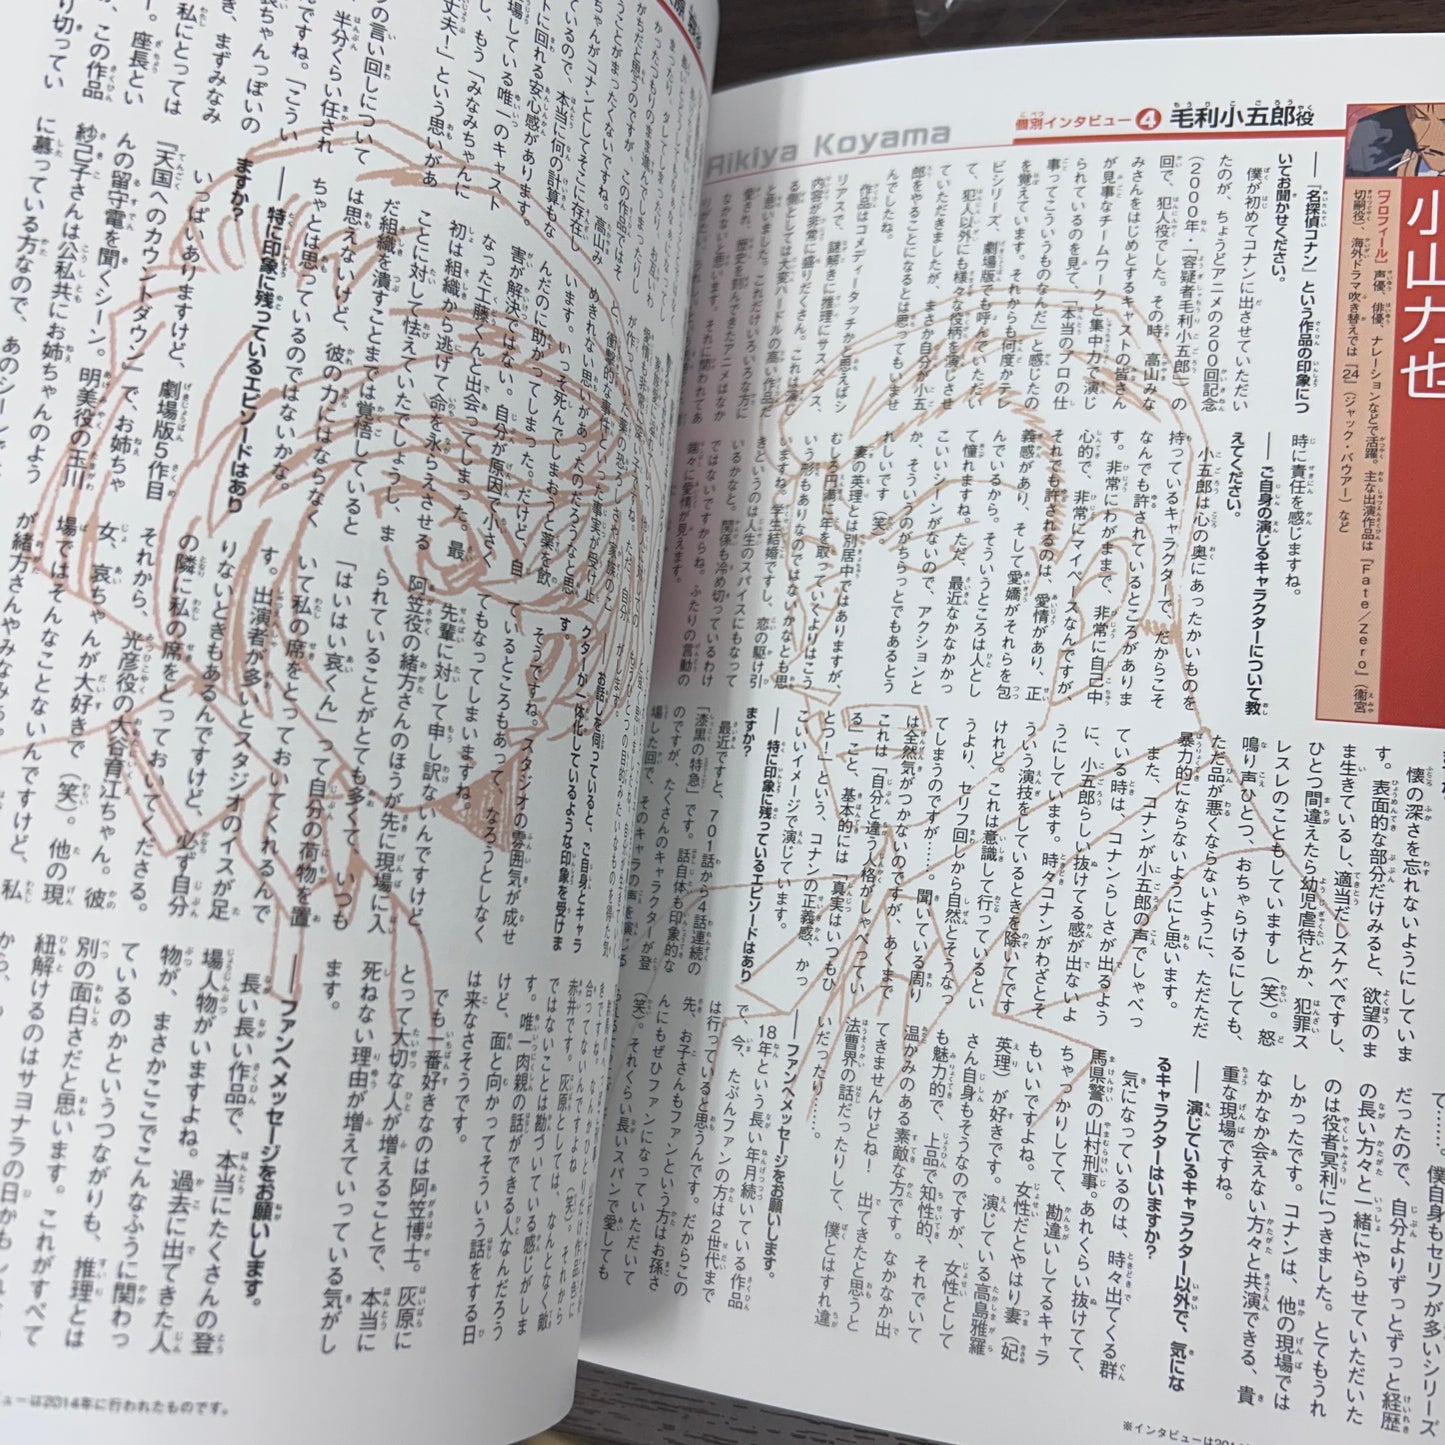 個別インタビュー❹ 毛利小五郎役
小山力也
Rikiya Koyama
[プロフィール] 声優、俳優、ナレーションなどで活躍。主な出演作品は『Fate/Zero』(衛宮
切嗣役)、海外ドラマ吹き替えでは『24』(ジャック・バウアー)など
──『名探偵コナン』という作品の印象につ
いてお聞かせください。
僕が初めてコナンに出させていただい
たのが、ちょうどアニメの200回記念
(2000年・「容疑者毛利小五郎」)の
回で、犯人役でした。その時、高山みな
みさんをはじめとするキャストの皆さん
が見事なチームワークと集中力で演じ
られているのを見て、「本当のプロの仕
事ってこういうものなんだ」と感じたの
を覚えています。それからも何度かテレ
ビシリーズ、劇場版でも呼んでいただい
て、犯人以外にも様々な役柄を演じさせ
ていただきましたが、まさか自分が小五
郎をやることになるとは思ってもいませ
んでしたね。
作品はコメディータッチかと思えばシ
リアスで、謎解きに推理にサスペンス、
内容が非常に盛りだくさん。これは演じ
る側としては大変ハードルの高い作品だ
と思いました。これだけいろいろな方に
愛され、歴史を刻んできたアニメはなか
なかないと思います。それに関われてあ
時に責任を感じますね。
──ご自身の演じるキャラクターについて教
えてください。
小五郎は心の奥にあったかいものを
持っているキャラクターで、だからこそ
なんでも許されているところがありま
す。非常にわがままで、非常に自己中
心的で、非常にマイペースなんですが、
それでも許されるのは、愛情があり、正
義感があり、そして愛嬌がそれらを包
んでいるから。そういうところは人とし
て憧れますね。ただ、最近なかなかかっ
こいいシーンがないので、アクションと
か、そういうのがちらっとでもあるとう
れしいです(笑)。
妻の英理とは別居中ではありますが、
むしろ円満に年を取っていてよりはこう
いう形もありなのではないかなとも思
いますね。学生結婚ですし、恋の駆け引
きというのは人生のスパイスにもなって
いるかなと。関係も冷め切っているわけ
ではないですからね。ふたりの言動の
端々に愛情が見えます。
懐の深さを忘れないようにしていま
す。表面的な部分だけみると、欲望のま
ま生きているし、適当だしスケベですし、
ひとつ間違えたら幼児虐待とか、犯罪ス
レスレのこともしていますし(笑)。怒
鳴り声ひとつ、おちゃらけるにしても、
ただ品が悪くならないように、ただただ
暴力的にならないようにと思います。
また、コナンが小五郎の声でしゃべっ
ている時は、コナンらしさが出るよう
に、小五郎らしい抜けてる感が出ないよ
うにしています。時々コナンがわざとそ
ういう演技をしているときを除いてです
けれど。これは意識して行っているとい
うより、セリフ回しから自然とそうなっ
てしまうのですが……。聞いている周り
は全然気がつかないのですが、あくまで
これは「自分と違う人格がしゃべってい
る」こと、基本的には「真実はいつもひ
とつ!」という、コナンの正義感、かっ
こいいイメージで演じています。
──特に印象に残っているエピソードはあり
ますか?
最近ですと、701話から4話連続の
「漆黒の特急」です。話自体も印象的な
のですが、たくさんのキャラクターが登
場した回で、そのキャラの声を演じる
て……。僕自身もセリフが多いシリーズ
だったので、自分よりずっとずっと経歴
の長い方々と一緒にやらせていただいた
のは役者冥利につきました。とてもうれ
しかったです。コナンは、他の現場では
なかなか会えない方々と共演できる、貴
重な現場ですね。
──演じているキャラクター以外で、気にな
るキャラクターはいますか?
気になっているのは、時々出てくる群
馬県警の山村刑事。あれくらい抜けてて、
ちゃっかりしてて、勘違いしてるキャラ
もいいですよね。女性だとやはり妻(妃
英理)が好きです。演じている高島雅羅
さん自身もそうなのですが、女性として
も魅力的で、上品で知性的、それでいて
温かみのある素敵な方です。なかなか出
てきませんけどね! 出てきたと思うと
法曹界の話だったりして、僕とはすれ違
いだったり……。
──ファンへメッセージをお願いします。
18年という長い年月続いている作品
で、今、たぶんファンの方は2世代まで
は行っていると思うんです。だからこの
先、お子さんもファンという方はお孫さ
んにもぜひファンになっていただいて
(笑)。それくらい長いスパンで愛しても
※インタビューは201
の言い回しについて
半分くらい任され
すね。「こうい
哀ちゃんっぽいの
、まずみなみ
私にとっては
ー。座長とい
が、この作品
り切ってい
ますか?
──特に印象に残っているエピソードはあり
いっぱいありますけど、劇場版5作目
『天国へのカウントダウン』で、お姉ちゃ
んの留守電を聞くシーン。明美役の玉川
紗己子さんは公私共にお姉ちゃんのよう
に慕っている方なので、あのシーンで
ことに対して怯えていたでしょうし、ま
だ組織を潰すことまでは覚悟していると
は思えないけど、彼の力にはならなく
ちゃとは思っているのではないかな。
初は組織から逃げて命を永らえさせる
なった工藤くんと出会ってしまった。最
害が解決ではない。自分が原因で小さく
んだのに助かってしまった。だけど、自
います。いっそ死んでしまおうと薬を飲
そうですね。スタジオの雰囲気が成せ
ているところもあって、なろうとしなく
てもなってしまいますね。
先輩に対して申し訳ないんですけど、
阿笠役の緒方さんのほうが先に現場に入
られていることがとても多くて、いつも
「はいはい哀くん」って自分の荷物を置
いて私の席をとっておいてくれるんで
す。出演者が多いとスタジオのイスが足
りないときもあるんですけど、必ず自分
の隣に私の席をとっておいてくださる。
それから、光彦役の大谷育江ちゃん。彼
女、哀ちゃんが大好きで(笑)。他の現
場ではそんなことないんですけど、私
が緒方さんやみなみ
──お話しを伺っていると、ご自身とキャラ
クターが一体化しているような印象を受けま
す。
赤井です。灰原としては、なんとなく敵
ではないことは勘づいている感じがしま
す。唯一肉親の話ができる人なんだろう
けど、面と向かってそういう話をする日
は来なさそうです。
でも一番好きなのは阿笠博士。灰原に
とって大切な人が増えることで、本当に
死ねない理由が増えていっている気がし
ます。
──ファンへメッセージをお願いします。
長い長い作品で、本当にたくさんの登
場人物がいますよね。過去に出てきた人
物が、まさかここでこんなふうに関わっ
ているのかというつながりも、推理とは
別の面白さだと思います。これがすべて
紐解けるのはサヨナラの日かもしれ
ューは2014年に行われたものです。